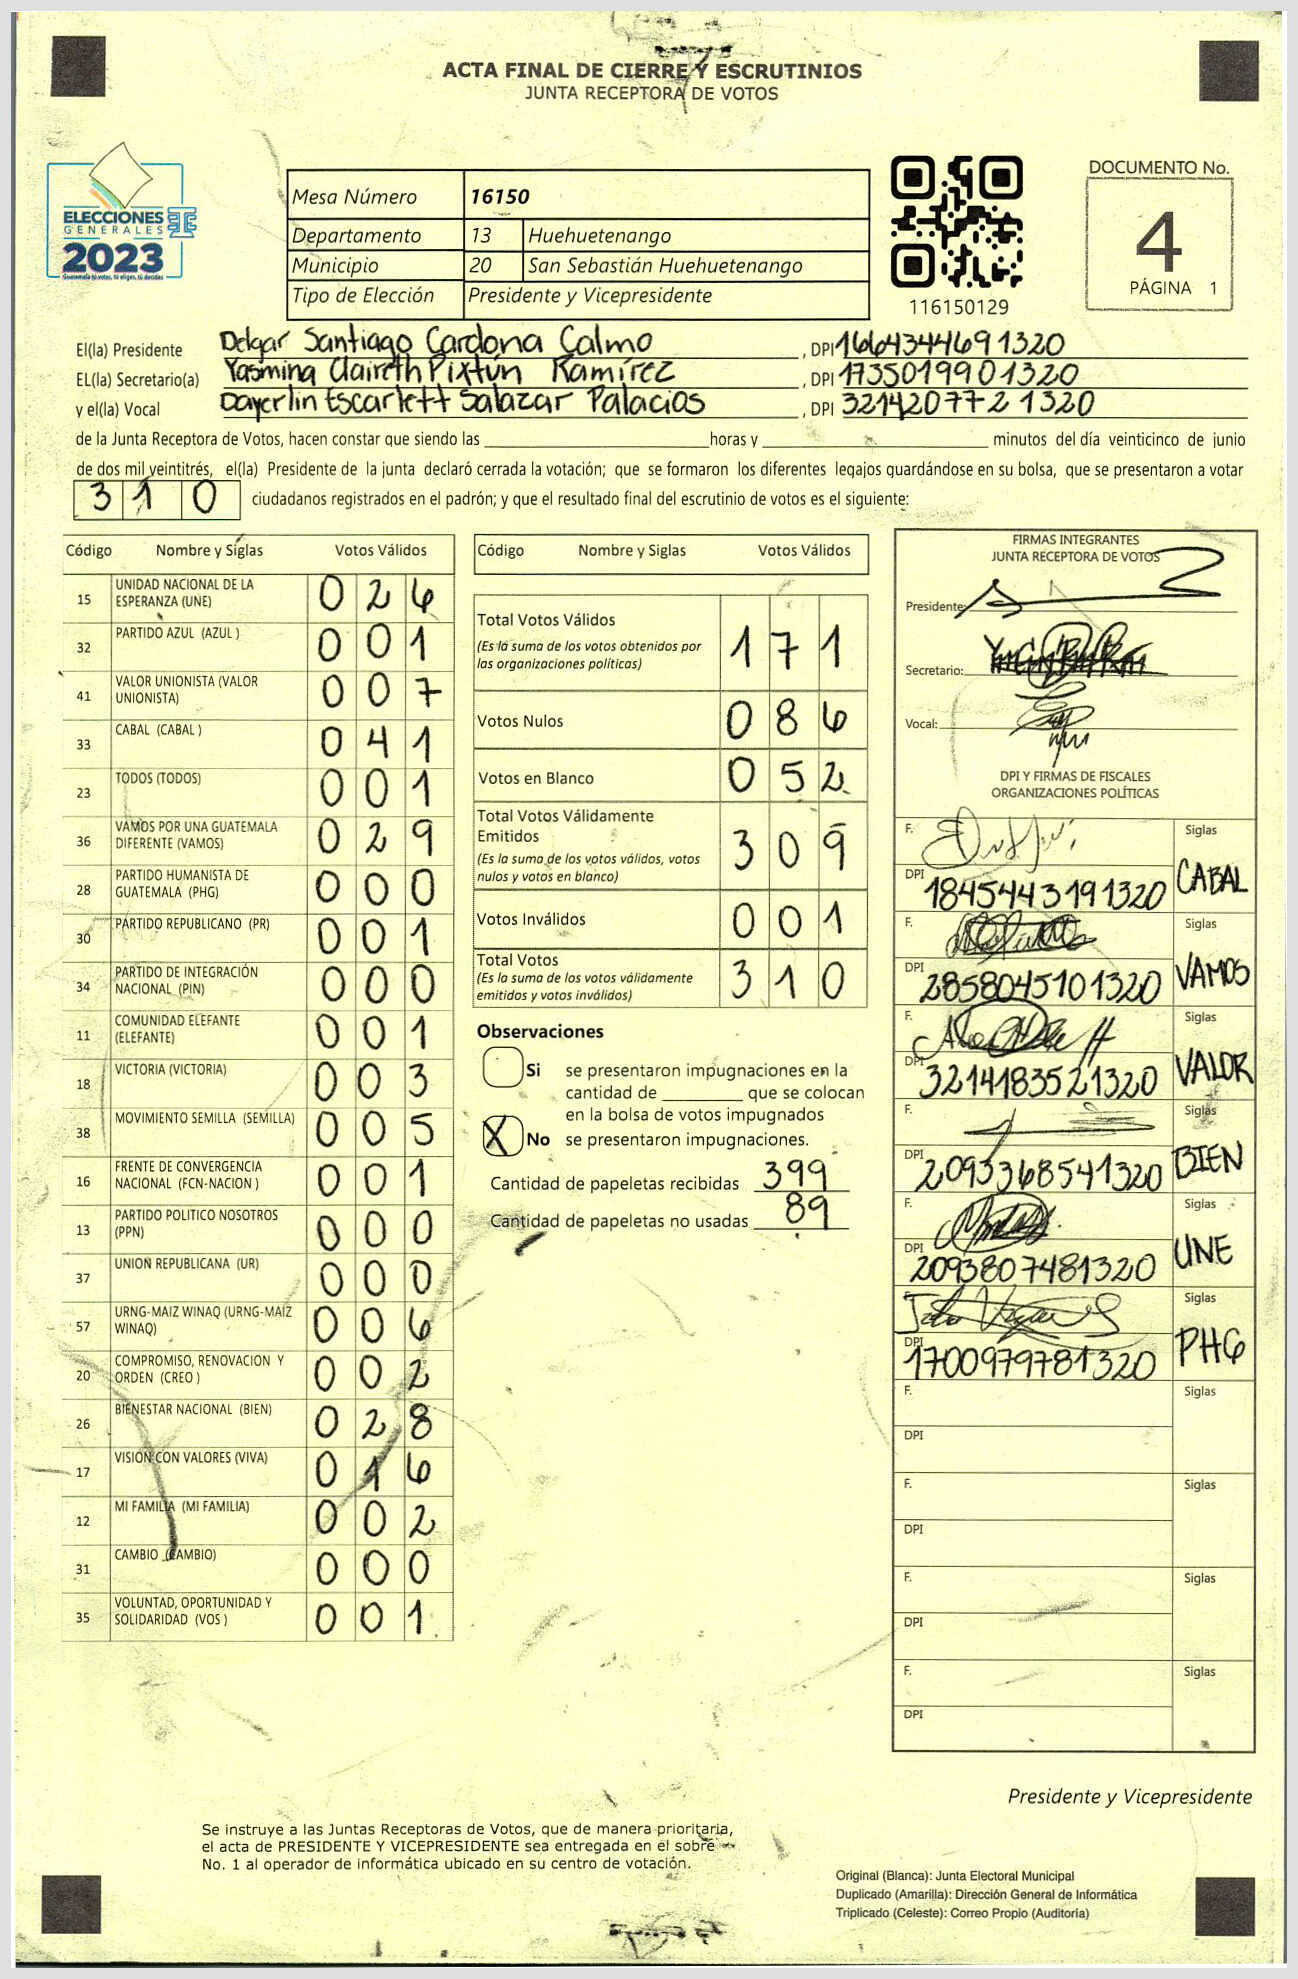 ACTA FINAL DE CIERRE Y ESCRUTINIOS
JUNTA RECEPTORA DE VOTOS
ELECCIONES
GENERALES
2023
Guatemala tú votas, tú eliges, tú decides
Mesa Número 16150
Departamento 13 Huehuetenango
Municipio 20 San Sebastián Huehuetenango
Tipo de Elección Presidente y Vicepresidente
116150129
DOCUMENTO No.
4
PÁGINA 1
El(la) Presidente Delgar Santiago Cardona Calmo, DPI 1664344691320
EL(la) Secretario(a) Yasmina Claireth Pixtún Ramírez, DPI 1735019901320
y el(la) Vocal Dayerlin Escarlett Salazar Palacios, DPI 3214207721320
de la Junta Receptora de Votos, hacen constar que siendo las ____ horas y ____ minutos del día veinticinco de junio
de dos mil veintitrés, el(la) Presidente de la junta declaró cerrada la votación; que se formaron los diferentes legajos guardándose en su bolsa, que se presentaron a votar
310 ciudadanos registrados en el padrón; y que el resultado final del escrutinio de votos es el siguiente:
Código Nombre y Siglas Votos Válidos
15 UNIDAD NACIONAL DE LA ESPERANZA (UNE) 026
32 PARTIDO AZUL (AZUL ) 001
41 VALOR UNIONISTA (VALOR UNIONISTA) 007
33 CABAL (CABAL ) 041
23 TODOS (TODOS) 001
36 VAMOS POR UNA GUATEMALA DIFERENTE (VAMOS) 029
28 PARTIDO HUMANISTA DE GUATEMALA (PHG) 000
30 PARTIDO REPUBLICANO (PR) 001
34 PARTIDO DE INTEGRACIÓN NACIONAL (PIN) 000
11 COMUNIDAD ELEFANTE (ELEFANTE) 001
18 VICTORIA (VICTORIA) 003
38 MOVIMIENTO SEMILLA (SEMILLA) 005
16 FRENTE DE CONVERGENCIA NACIONAL (FCN-NACION ) 001
13 PARTIDO POLITICO NOSOTROS (PPN) 000
37 UNION REPUBLICANA (UR) 000
57 URNG-MAIZ WINAQ (URNG-MAIZ WINAQ) 006
20 COMPROMISO, RENOVACION Y ORDEN (CREO ) 002
26 BIENESTAR NACIONAL (BIEN) 028
17 VISION CON VALORES (VIVA) 016
12 MI FAMILIA (MI FAMILIA) 002
31 CAMBIO (CAMBIO) 000
35 VOLUNTAD, OPORTUNIDAD Y SOLIDARIDAD (VOS ) 001
Código Nombre y Siglas Votos Válidos
Total Votos Válidos 171
(Es la suma de los votos obtenidos por
las organizaciones políticas)
Votos Nulos 086
Votos en Blanco 052
Total Votos Válidamente
Emitidos 309
(Es la suma de los votos válidos, votos
nulos y votos en blanco)
Votos Inválidos 001
Total Votos 310
(Es la suma de los votos válidamente
emitidos y votos inválidos)
Observaciones
Si se presentaron impugnaciones en la
cantidad de ____ que se colocan
en la bolsa de votos impugnados
X No se presentaron impugnaciones.
Cantidad de papeletas recibidas 399
Cantidad de papeletas no usadas 89
FIRMAS INTEGRANTES
JUNTA RECEPTORA DE VOTOS
Presidente:
Secretario:
Vocal:
DPI Y FIRMAS DE FISCALES
ORGANIZACIONES POLÍTICAS
F. Siglas
DPI 1845443191320 CABAL
F. Siglas
DPI 2858045101320 VAMOS
F. Siglas
DPI 3214183521320 VALOR
F. Siglas
DPI 2093368541320 BIEN
F. Siglas
DPI 2093807481320 UNE
F. Siglas
DPI 1700979781320 PHG
F. Siglas
DPI
F. Siglas
DPI
F. Siglas
DPI
F. Siglas
DPI
Presidente y Vicepresidente
Se instruye a las Juntas Receptoras de Votos, que de manera prioritaria,
el acta de PRESIDENTE Y VICEPRESIDENTE sea entregada en el sobre
No. 1 al operador de informática ubicado en su centro de votación.
Original (Blanca): Junta Electoral Municipal
Duplicado (Amarilla): Dirección General de Informática
Triplicado (Celeste): Correo Propio (Auditoría)